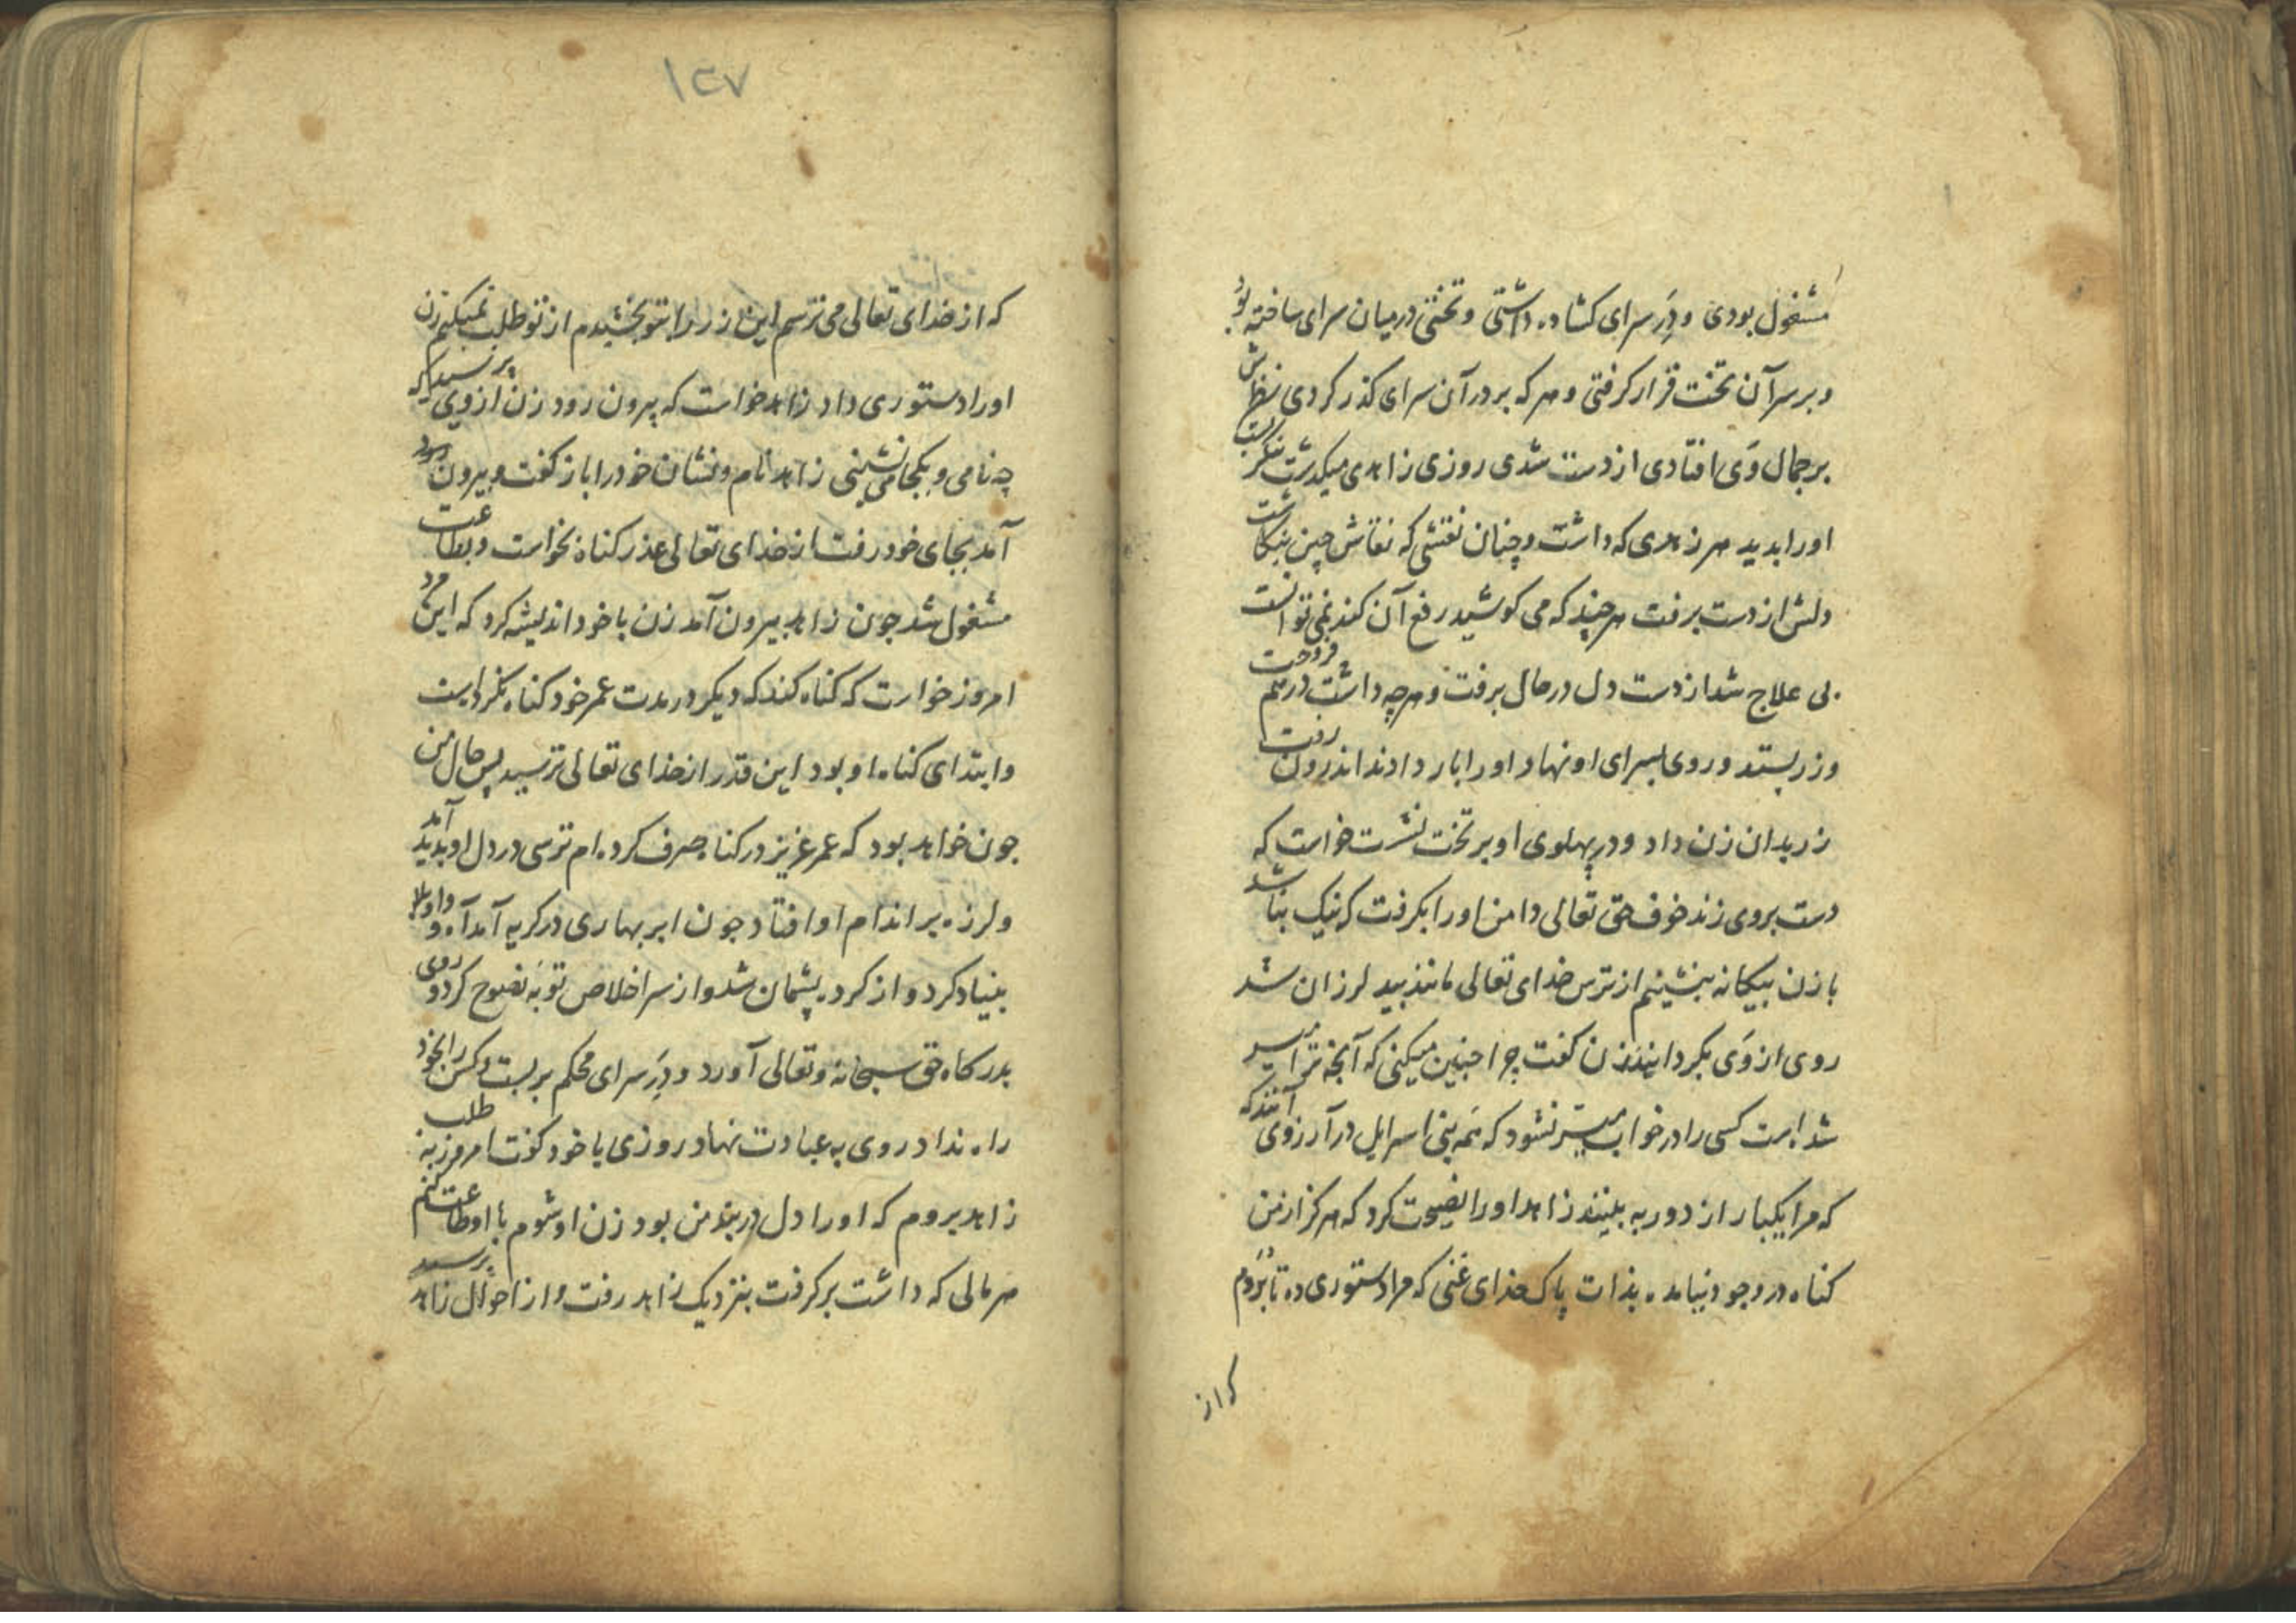 مشغول بودی و دَرِ سرای کشاده داشتی و تختی در میان سرای ساخته بود
و بر سر آن تخت قرار کرفتی و هر که بر در آن سرای کذر کردی نظرش
بر جمال وَی افتادی از دست شدی روزی زاهدی میکذشت
اورا بدید هر زهدی که داشت و چنان نقشی که نقاش چین بنکاشت
دلش از دست برفت هر چند که می کوشید رفع آن کند نمی توانست
بی علاج شد از دست دل در حال برفت و هر چه داشت درهم فروخت
و زر بستد و روی بسرای او نهاد و اورا بار دادند اندرون رفت
زر بدان زن داد و در پهلوی او بر تخت نشست خواست که
دست بروی زند خوف حق تعالی دامن اورا بکرفت که نیک نباشد
با زن بیکانه بنشینم از ترس خدای تعالی مانند بید لرزان شد
روی از وَی بکردانید زن کفت چرا جنین میکنی که آنجه ترا میسر
شده است کسی را در خواب میسر نشود که همه بنی اسرایل در آرزوی آنند که
که مرا یکبار از دور به بینند زاهد اورا نصیحت کرد که هرکز از من
کناه در وجود نیامده بذات پاک خدای غنی که مرا دستوری ده تا بَروم
که از
۱۲۷
که از خدای تعالی می ترسم این زر را بتو بخشیدم از تو طلب نمیکنم زن
اورا دستوری داد زاهد خواست که بیرون رود زن از وی پرسید که
چه نامی و بکجا می نشینی زاهد نام و نشان خود را باز کفت و بیرون
آمد بجای خود رفت از خدای تعالی عذر کناه بخواست و بطاعت
مشغول شد جون زاهد بیرون آمد زن با خود اندیشه کرد که این مرد
امروز خواست که کناه کند که دیکر در مدت عمر خود کناه نکرده است
و ابتدای کناه او بود این قدر از خدای تعالی ترسید پس حال من
جون خواهد بود که عمر عزیز در کناه صرف کرده ام ترسی در دل او پدید آمد
و لرزه بر اندام او افتاد جون ابر بهاری در کریه آمد آه و واویلا
بنیاد کرد و از کرده پشمان شد و از سر اخلاص توبَهٔ نصوح کرد و روی
بدرکاه حق سبحانه و تعالی آورد و دَرِ سرای محکم بر بست و کس را بخود
راه نداد روی به عبادت نهاد روزی با خود کفت امروز به طلب
زاهد بروم که اورا دل در بند من بود زن او شوم با او طاعت کنم
هر مالی که داشت بر کرفت بنزدیک زاهد رفت و از احوال زاهد پرسید